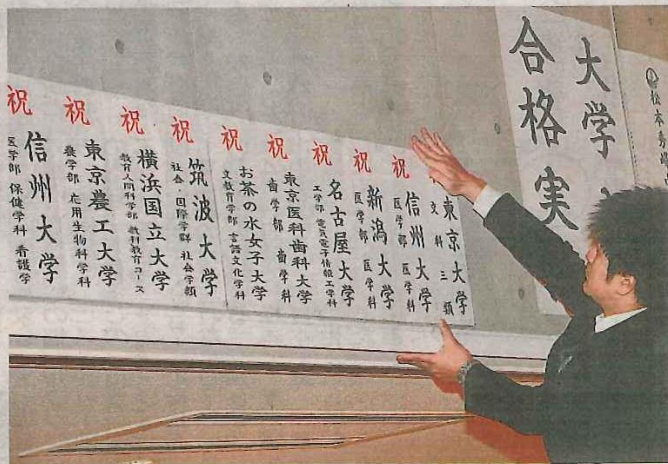 松本
大学
合格実
東京大学
文科三類
祝
信州大学
医学部 医学科
祝
新潟大学
医学部 医学科
祝
名古屋大学
工学部 電気電子情報工学科
祝
東京医科歯科大学
歯学部 歯学科
祝
お茶の水女子大学
文教育学部 言語文化学科
祝
筑波大学
社会・国際学群 社会学類
祝
横浜国立大学
教育人間科学部 教科教育コース
祝
東京農工大学
農学部 応用生物科学科
祝
信州大学
医学部 保健学科 看護学